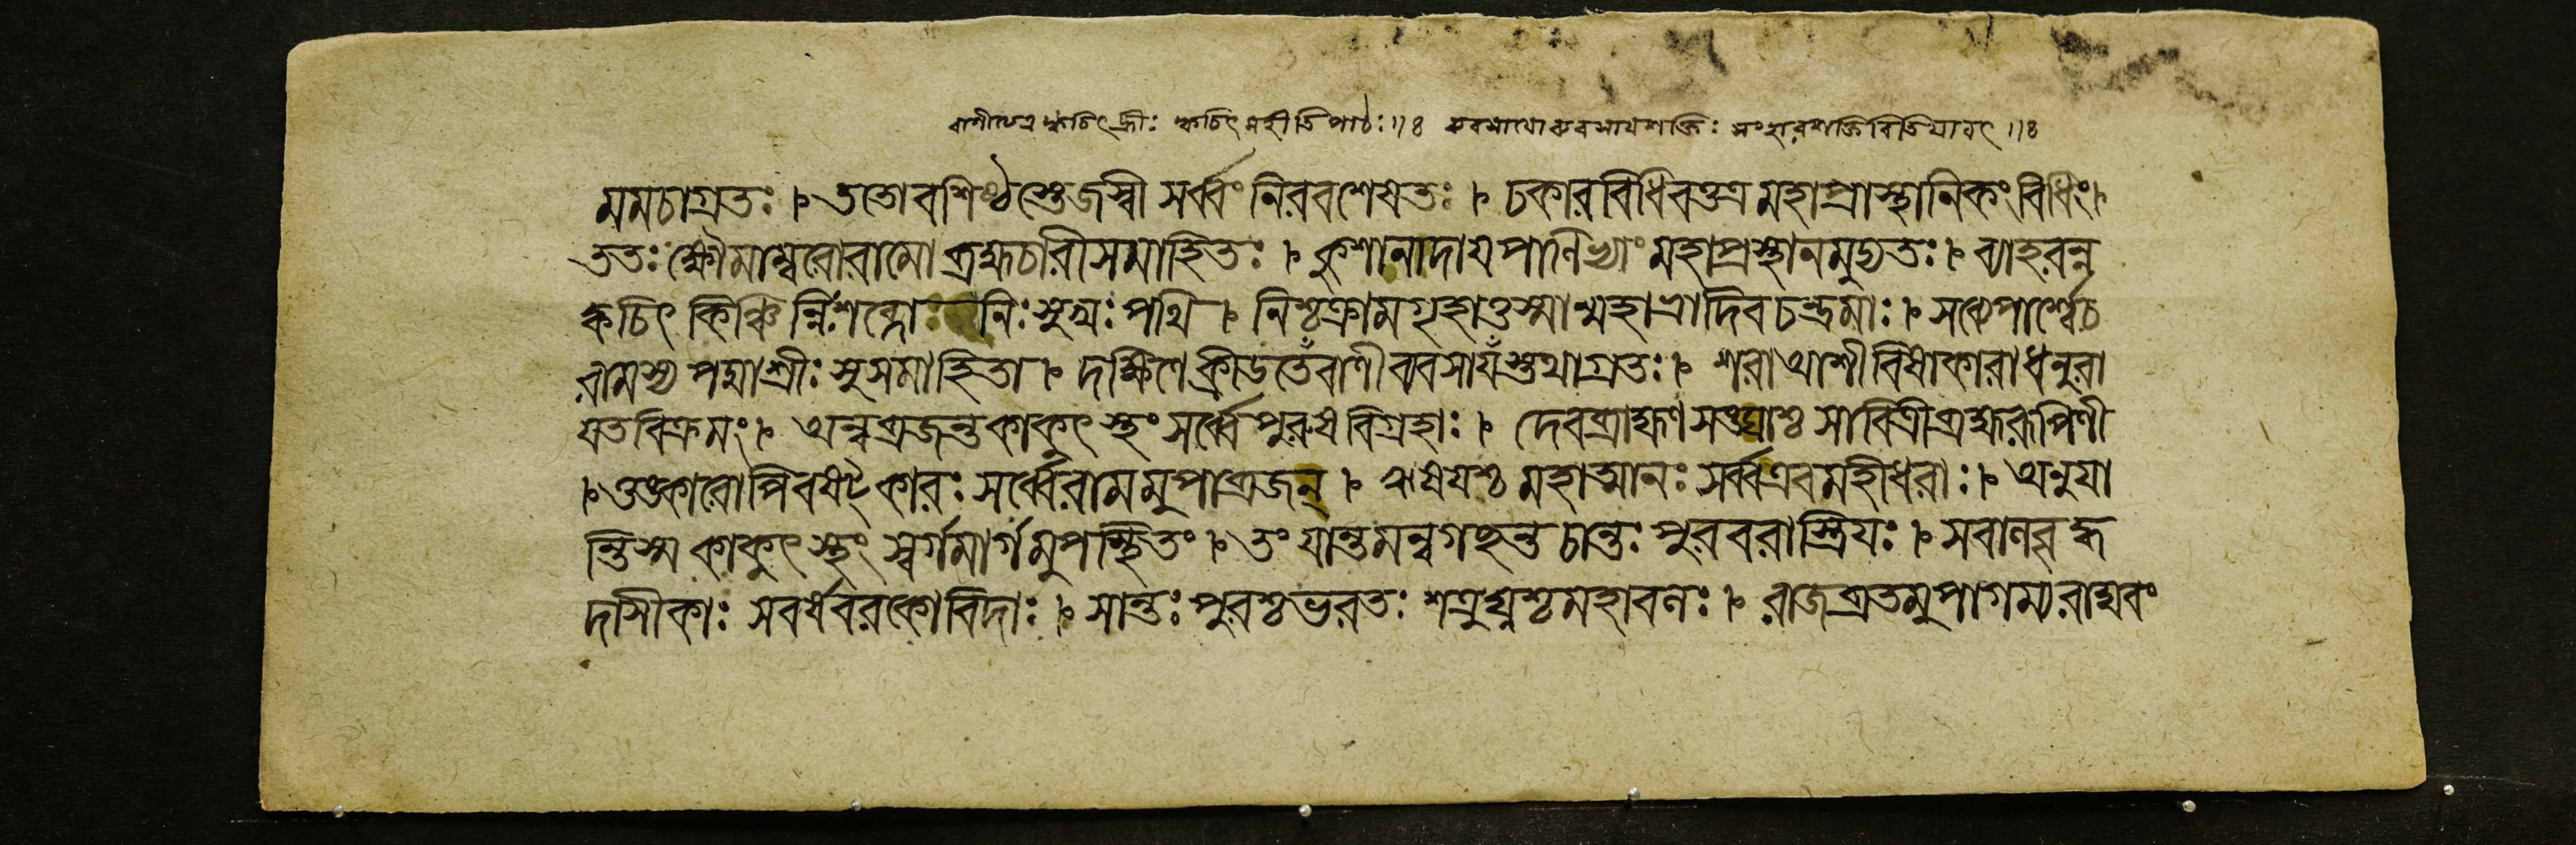 বাণীত্যত্র ক্বচিৎ হ্রীঃ ক্বচিৎ মহীতিপাঠঃ॥ঃ ব্যবসাযো ব্যবসাযশক্তিঃ সংহারশক্তিরিতিযাবৎ॥ঃ
মমচাগ্রতঃ। ততোবশিষ্ঠস্তেজস্বী সর্ব্বং নিরবশেষতঃ। চকারবিধিবত্তত্র মহাপ্রাস্থানিকংবিধিং।
ততঃ ক্ষৌমাম্বরোরামো ব্রহ্মচারীসমাহিতঃ। কুশানাদায়পাণিভ্যাং মহাপ্রস্থানমুদ্যতঃ। ব্যাহরন্ন
ক্বচিৎ কিঞ্চিন্নিঃশব্দো নিঃসুখঃ পথি। নিশ্চক্রামগৃহাত্তস্মান্মহাভ্রাদিবচন্দ্রমাঃ। সব্যেপার্শ্বেচ
রামস্য পদ্মাশ্রীঃ সুসমাহিতা। দক্ষিণে ক্রীডতেঁবাণীব্যবসাযঁস্তথাগ্রতঃ। শরাআশীবিষাকারাধনুরা
যতবিক্রমং। অন্বব্রজন্তকাকুৎস্থং সর্ব্বেপুরুষবিগ্রহাঃ। দেবব্রাহ্মণ সঙ্ঘাশ্চ সাবিত্রীব্রহ্মরূপিণী
।ওঙ্কারোপিবষট্কারঃ সর্ব্বেরামমুপাব্রজন্। ঋষযশ্চ মহাত্মানঃ সর্ব্বএবমহীধরাঃ। অনুযা
ন্তিস্ম কাকুৎস্থং স্বর্গমার্গমুপস্থিতং। তং যান্তমন্বগচ্ছন্ত চান্তঃপুরবরাস্ত্রিযঃ। সবালবৃদ্ধ
দাসীকাঃ সবর্ষবরকোবিদাঃ। সান্তঃপুরশ্চভরতঃ শত্রুঘ্নশ্চমহাবলঃ। রামব্রতমুপাগম্যরাঘবং